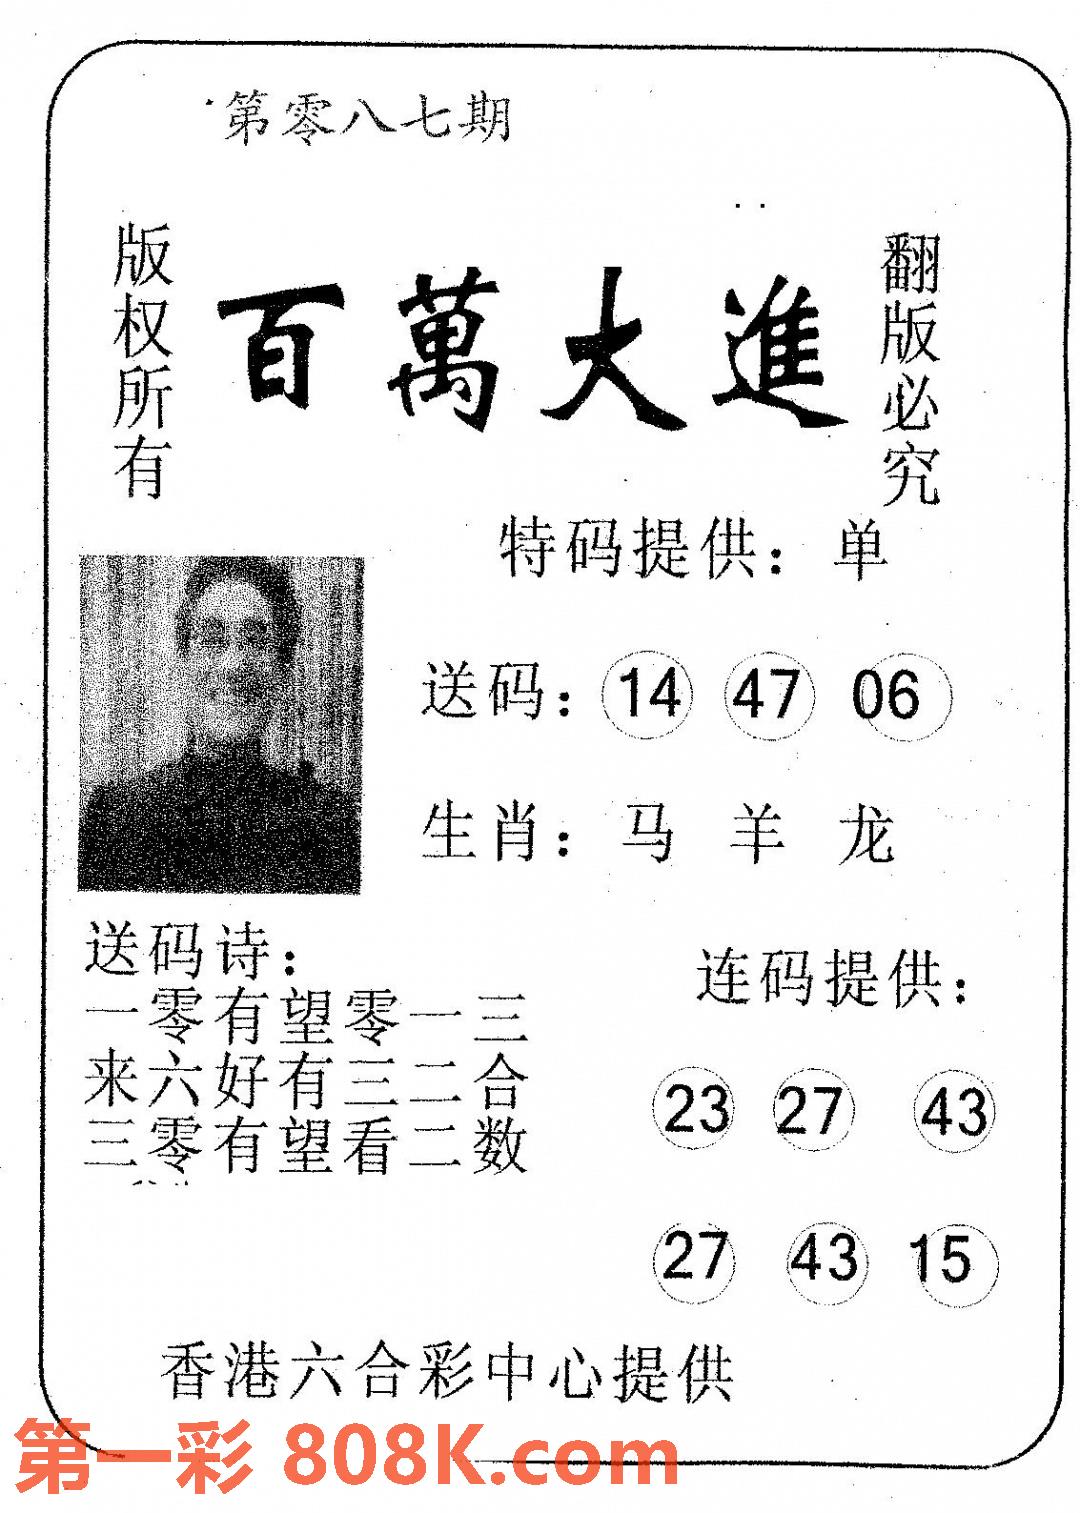 第零八七期
版权所有
百萬大進
翻版必究
特码提供：单
送码：14 47 06
生肖：马 羊 龙
送码诗：
一零有望零一三
来六好有三二合
三零有望看二数
连码提供：
23 27 43
27 43 15
香港六合彩中心提供
第一彩 808K.com